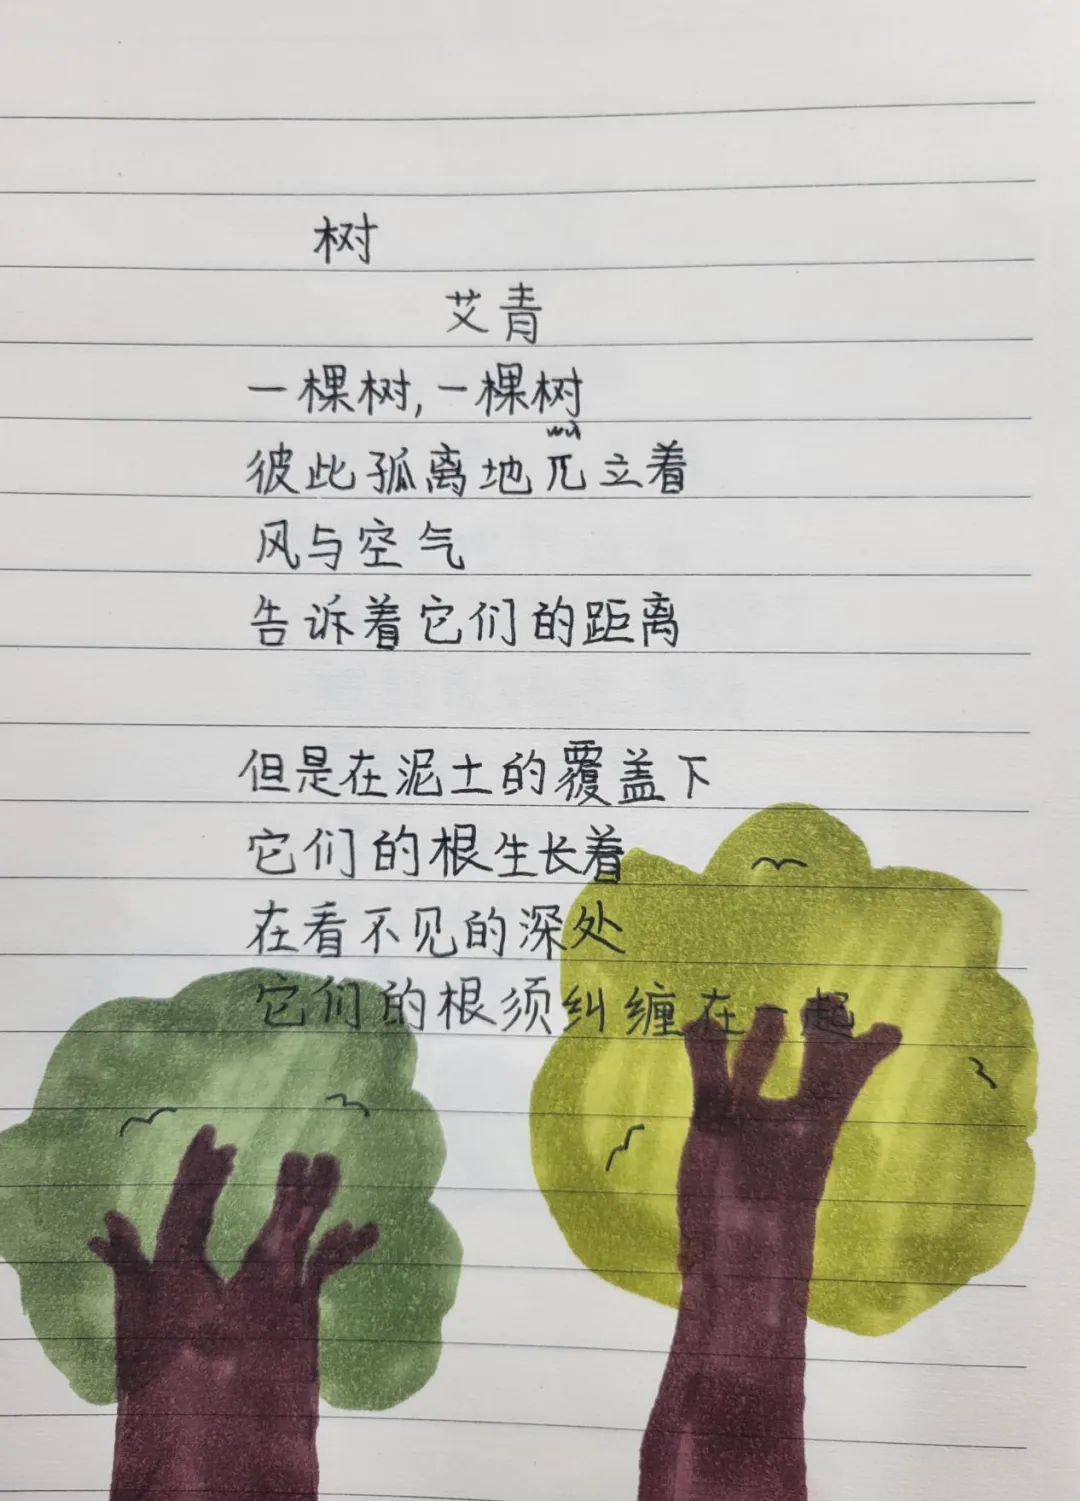 树
艾青
一棵树,一棵树
wù
彼此孤离地兀立着
风与空气
告诉着它们的距离
但是在泥土的覆盖下
它们的根生长着
在看不见的深处
它们的根须纠缠在一起